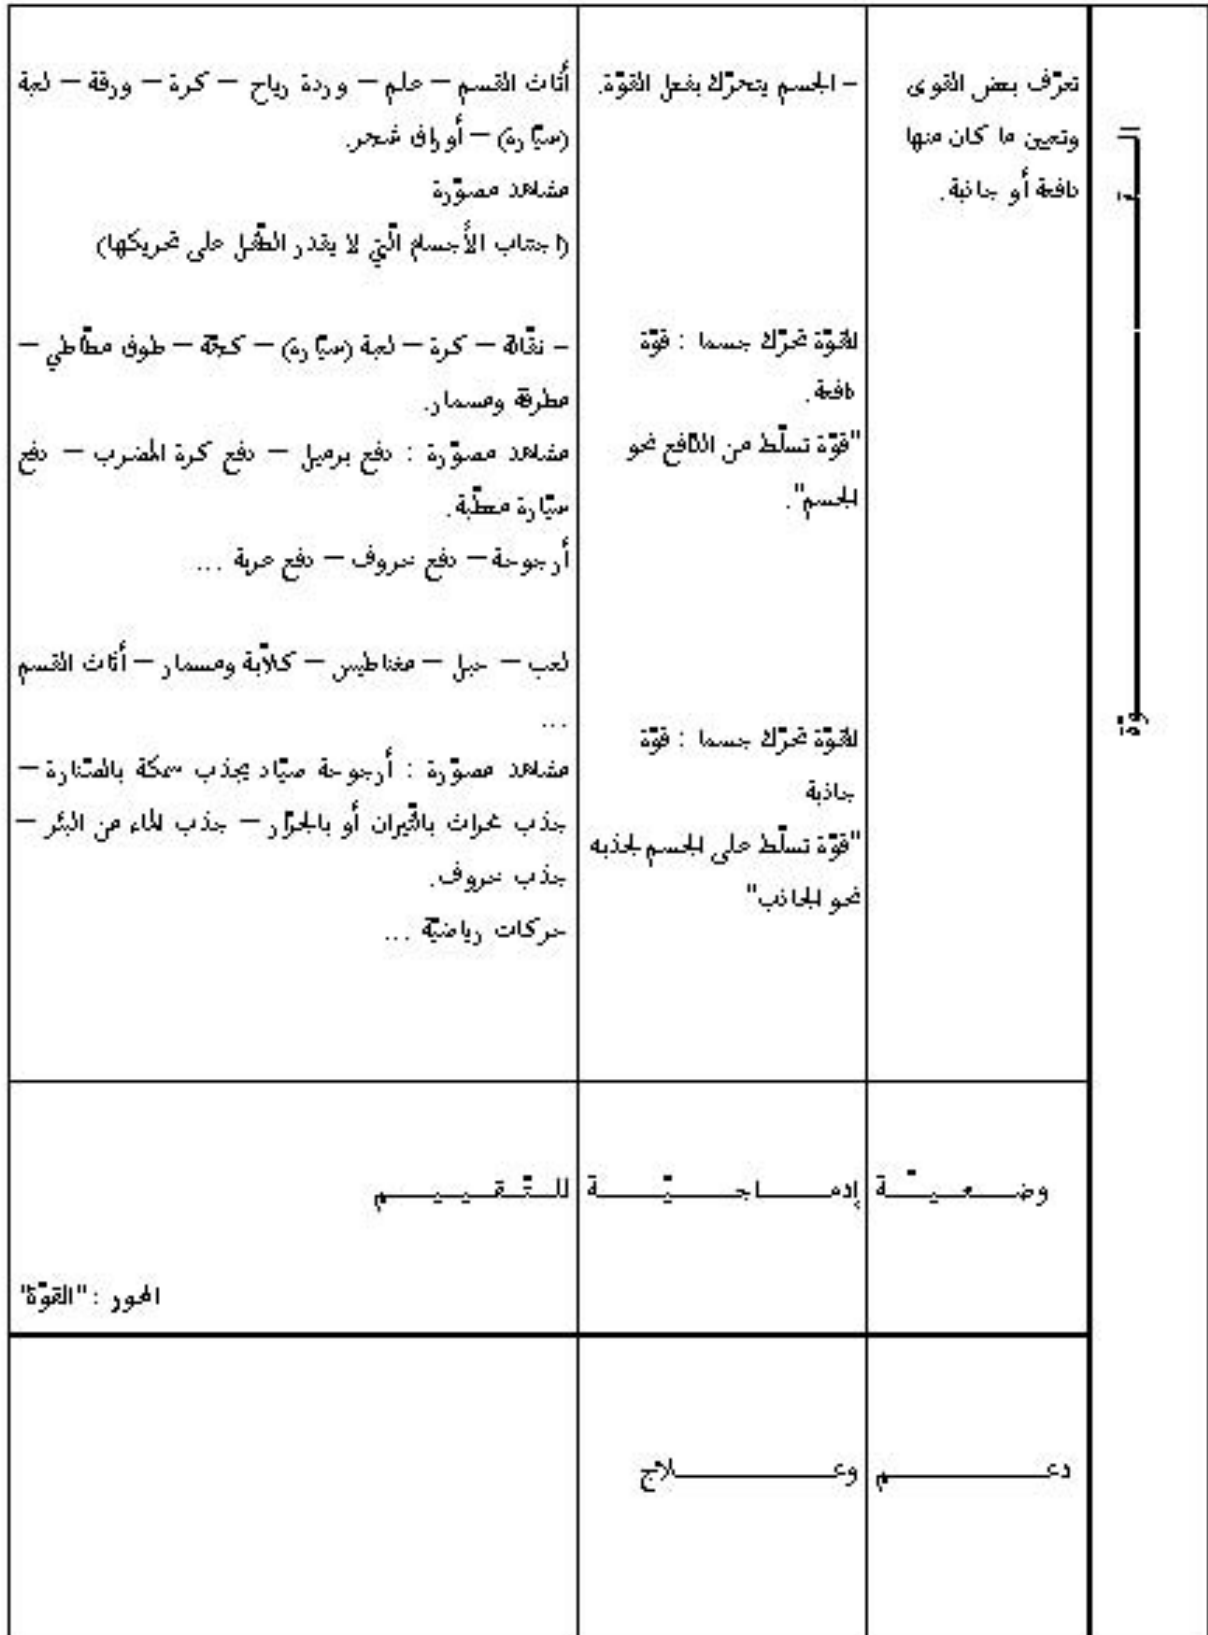 القوة
تعرّف بعض القوى
وتعيين ما كان منها
دافعة أو جاذبة.
– الجسم يتحرّك بفعل القوّة.
للقوّة تحرّك جسما : قوّة
دافعة.
"قوّة تسلّط من الدّافع نحو
الجسم".
للقوّة تحرّك جسما : قوّة
جاذبة
"قوّة تسلّط على الجسم لجذبه
نحو الجاذب"
أثاث القسم – علم – وردة رياح – كرة – ورقة – لعبة
(سيّارة) – أوراق شجر.
مشاهد مصوّرة
(اجتناب الأجسام الّتي لا يقدر الطّفل على تحريكها)
– نقّالة – كرة – لعبة (سيّارة) – كجّة – طوق مطّاطي –
مطرقة ومسمار.
مشاهد مصوّرة : دفع برميل – دفع كرة المضرب – دفع
سيّارة معطّبة.
أرجوحة – دفع خروف – دفع عربة ...
لعب – حبل – مغناطيس – كلاّبة ومسمار – أثاث القسم
...
مشاهد مصوّرة : أرجوحة صيّاد يجذب سمكة بالصّنّارة –
جذب محراث بالثّيران أو بالجرّار – جذب الماء من البئر –
جذب خروف.
حركات رياضيّة ...
وضعيّة إدماجيّة للتّقييم
المحور : "القوّة"
دعم وعلاج